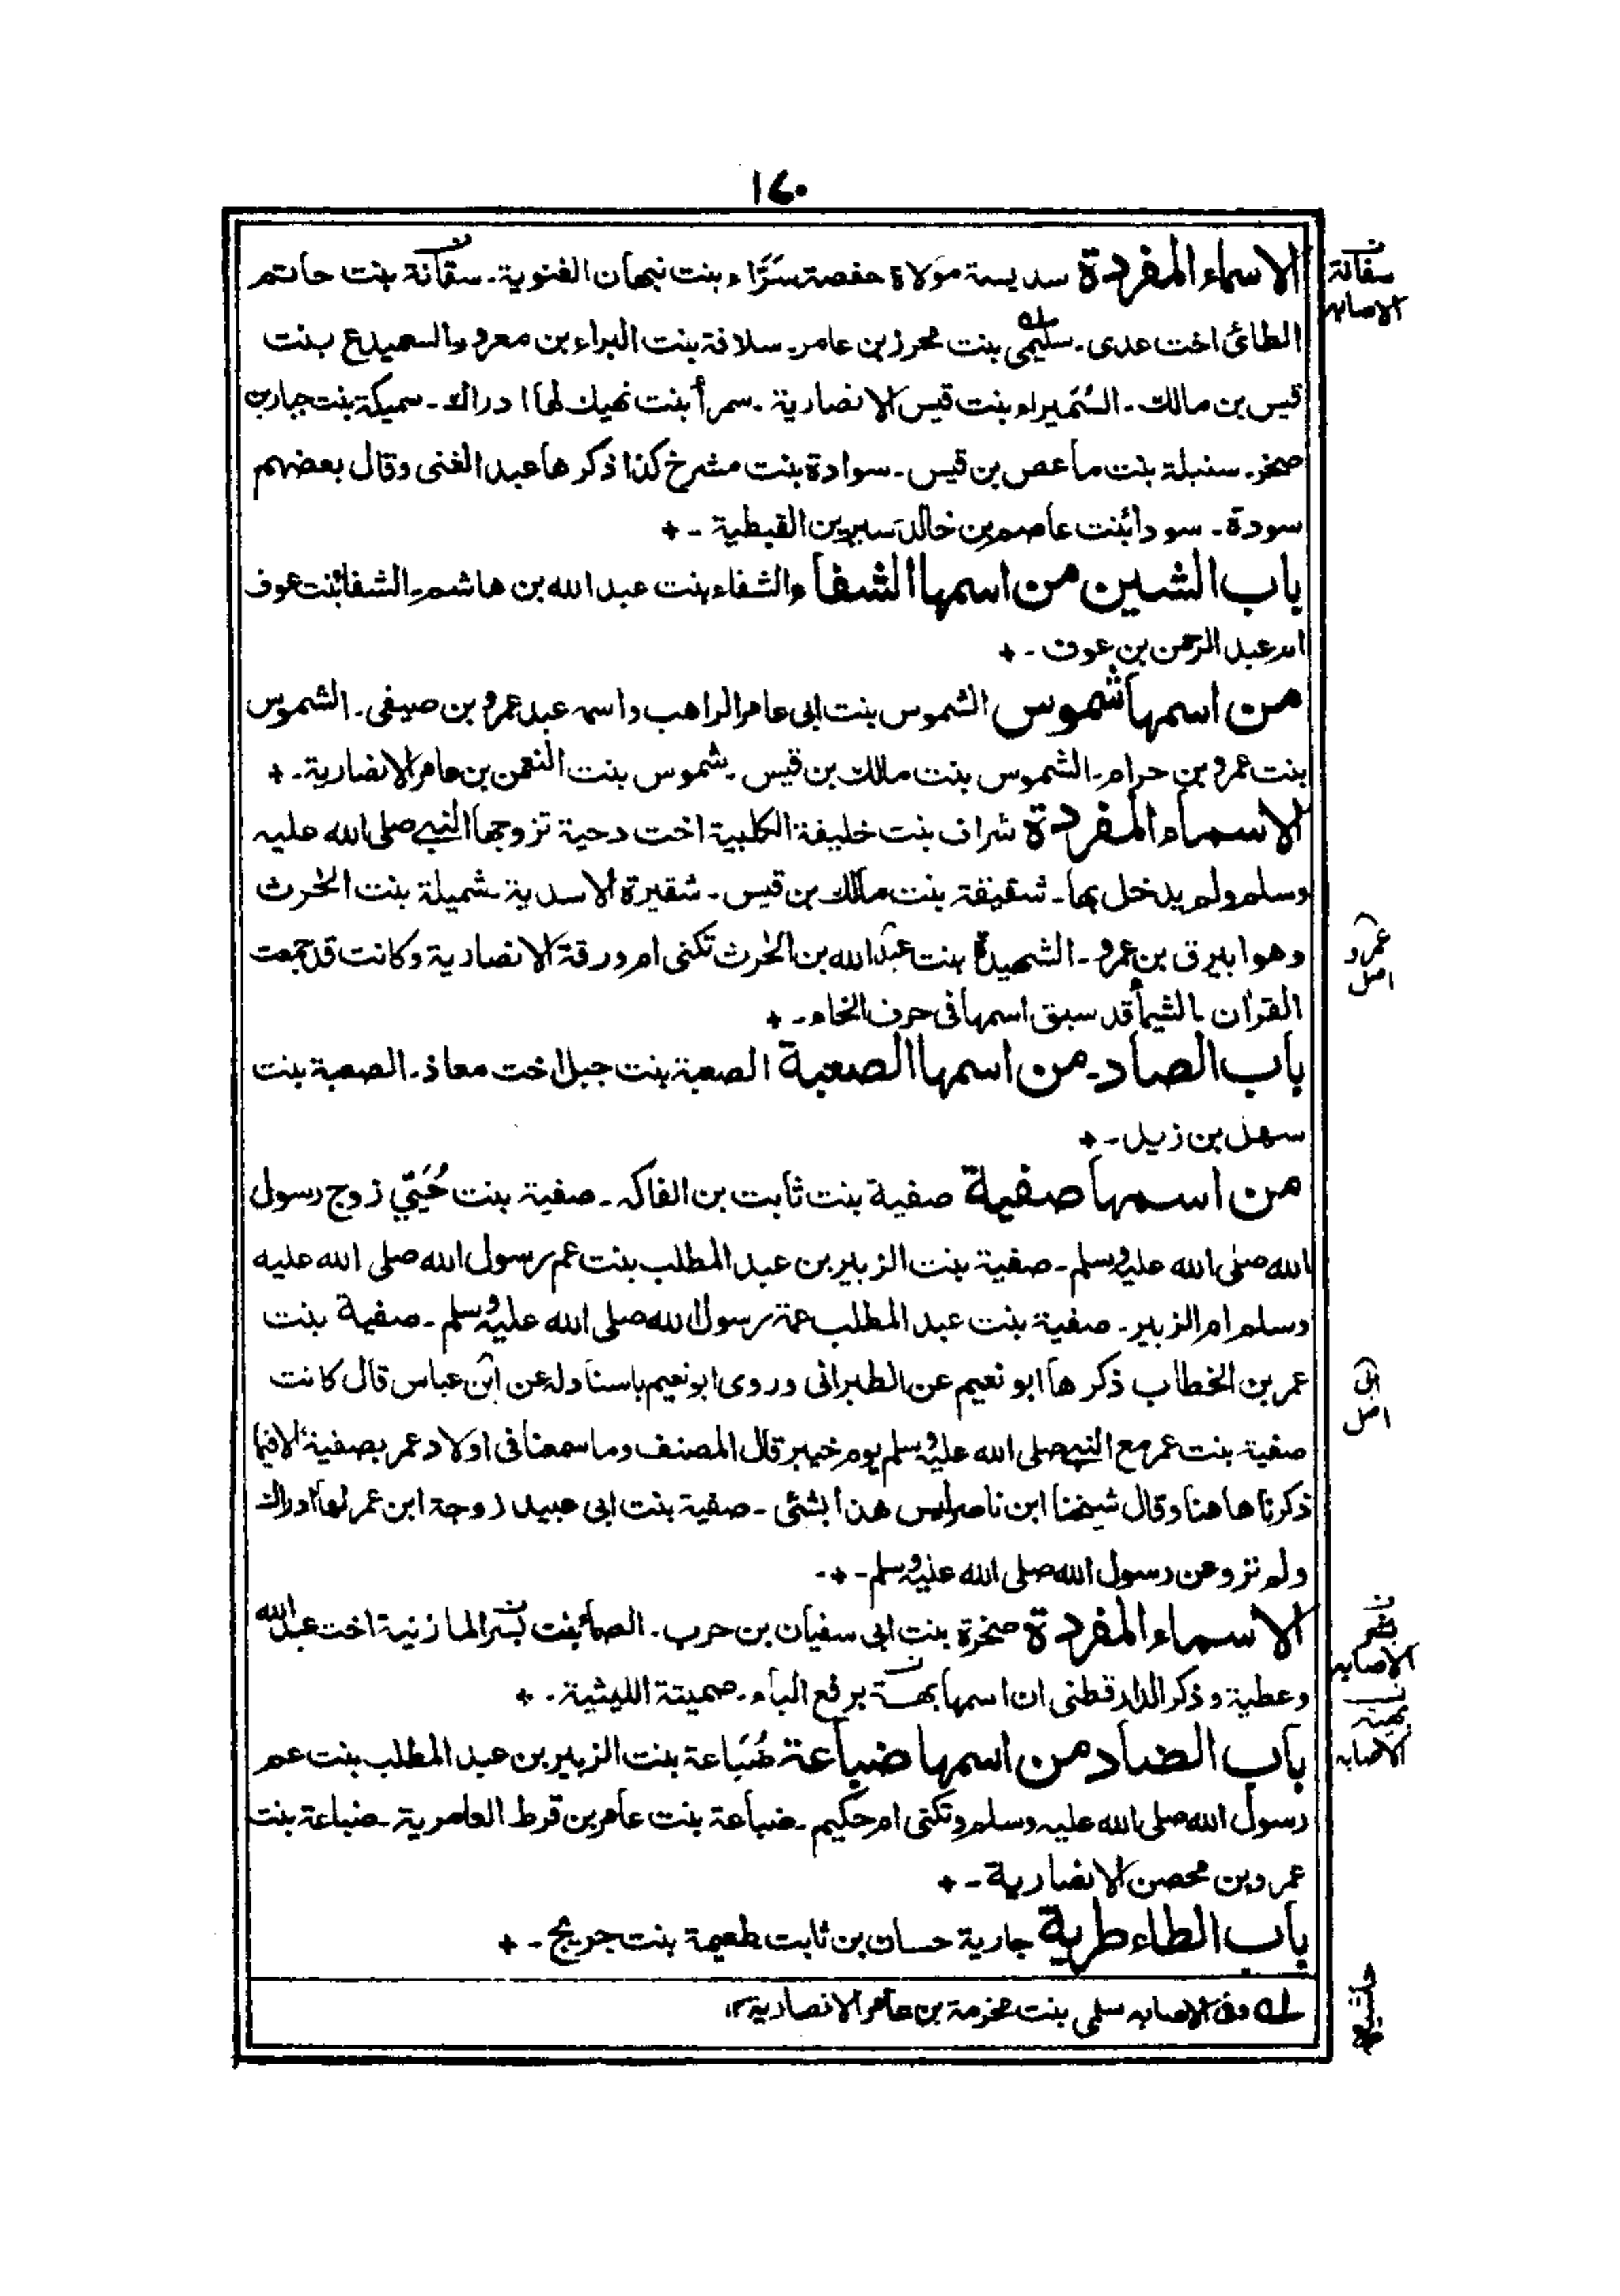 ١٧٠
الاسماء المفردة سديسة مَولاة حفصة سَرَّاء بنت نبهان الغنوية۔ سقانة بنت حاتم
الطائ اخت عدى۔ سليمى بنت محرز بن عامر۔ سلافة بنت البراء بن معرور السميدع بنت
قيس بن مالك۔ السُمَيراء بنت قيس الانصارية۔ سمرأ بنت نهيك لها ادراك۔ سميكة بنت جبار بن
صخر۔ سنبلة بنت ماعص بن قيس۔ سوادة بنت مشرخ كذا ذكرها عبد الغنى وقال بعضهم
سودة۔ سودا بنت عاصم بن خالد سيرين القبطية۔ +
باب الشين من اسمها الشفاء والشفاء بنت عبد الله بن هاشم۔ الشفا بنت عوف
ام عبد الرحمن بن عوف۔ +
من اسمها شموس الشموس بنت ابى عامر الراهب واسمه عبد عمرو بن صيفى۔ الشموس
بنت عمرو بن حرام۔ الشموس بنت مالك بن قيس۔ شموس بنت النعمن بن عامر الانصارية۔ +
الاسماء المفردة شراف بنت خليفة الكلبية اخت دحية تزوجها النبي صلى الله عليه
وسلم ولم يدخل بها۔ شقيقة بنت مالك بن قيس۔ شقيرة الاسدية۔ شميلة بنت الحٰرث
وهو ابيرق بن عمرو۔ الشهيدة بنت عبد الله بن الحٰرث تكنى ام ورقة الانصارية وكانت قد جمعت
القران۔ الشيمأ قد سبق اسمها فى حرف الخاء۔ +
باب الصاد۔ من اسمها الصعبة الصعبة بنت جبل اخت معاذ۔ الصعبة بنت
سهل بن زيد۔ +
من اسمها صفية صفية بنت ثابت بن الفاكه۔ صفية بنت حُيَيّ زوج رسول
الله صلى الله عليه وسلم۔ صفية بنت الزبير بن عبد المطلب بنت عم رسول الله صلى الله عليه
وسلم ام الزبير۔ صفية بنت عبد المطلب عمة رسول الله صلى الله عليه وسلم۔ صفية بنت
عمر بن الخطاب ذكرها ابو نعيم عن الطبرانى وروى ابو نعيم باسناد له عن ابن عباس قال كانت
صفية بنت عمر مع النبي صلى الله عليه وسلم يوم خيبر قال المصنف وما سمعنا فى اولاد عمر بصفية الا فيما
ذكرنا هاهنا وقال شيخنا ابن ناصر ليس هذا بشئ۔ صفية بنت ابى عبيد زوجة ابن عمر لها ادراك
ولم ترو عن رسول الله صلى الله عليه وسلم۔ +
الاسماء المفردة صخرة بنت ابى سفيان بن حرب۔ الصما بنت بسر المازنية اخت عبد الله
وعطية وذكر الدارقطنى ان اسمها بهية برفع الباء۔ صميتة الليثية۔ +
باب الضاد من اسمها ضباعة ضُبَاعة بنت الزبير بن عبد المطلب بنت عم
رسول الله صلى الله عليه وسلم وتكنى ام حكيم۔ ضباعة بنت عامر بن قرط العامرية۔ ضباعة بنت
عمرو بن محصن الانصارية۔ +
باب الطاء طرية جارية حسان بن ثابت طعيمة بنت جريج۔ +
له وفى الاصابه سلمى بنت مخرمة بن عامر الانصارية ١٢
ن
سفانة
الاصابه
عمرو
اصل
ابى
اصل
الاصابه
ن
الاصابه
حاشيه